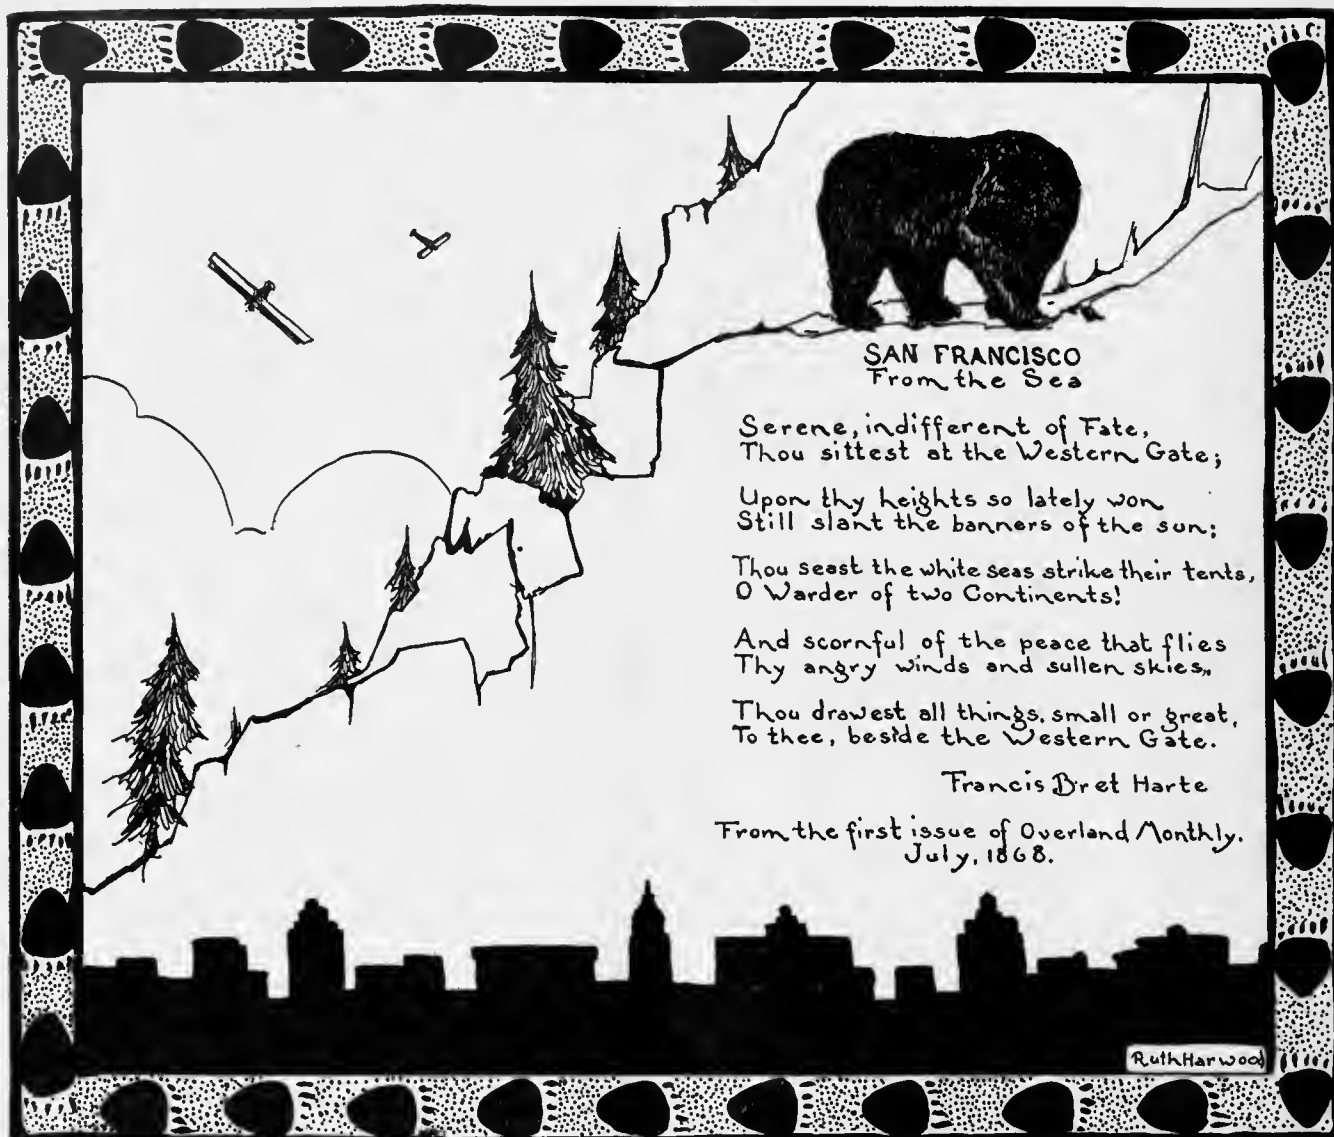 SAN FRANCISCO
From the Sea
Serene, indifferent of Fate,
Thou sittest at the Western Gate;
Upon thy heights so lately won
Still slant the banners of the sun;
Thou seast the white seas strike their tents,
O Warder of two Continents!
And scornful of the peace that flies
Thy angry winds and sullen skies,
Thou drawest all things, small or great,
To thee, beside the Western Gate.
Francis Bret Harte
From the first issue of Overland Monthly.
July, 1868.
Ruth Harwood